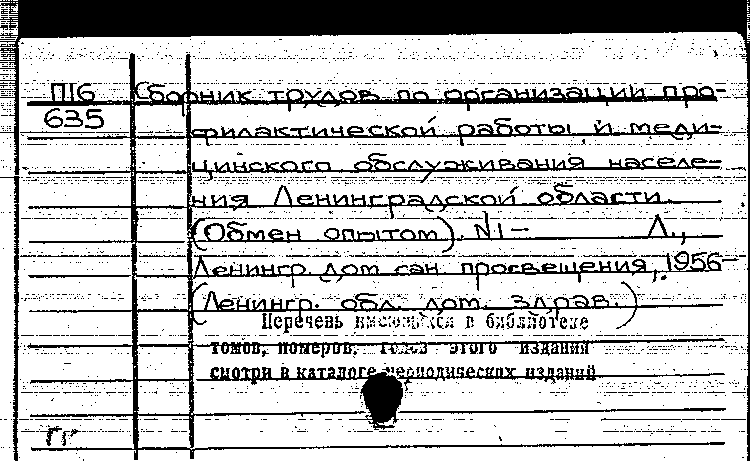 П16 Сборник трудов по организации про-
635
филактической работы и меди-
цинского обслуживания населе-
ния Ленинградской области.
(Обмен опытом). N1- Л.,
Ленингр. дом сан. просвещения, 1956-
(Ленингр. обл. дом. здрав.)
Перечень имеющихся в библиотеке
томов, номеров, годов этого издания
смотри в каталоге периодических изданий